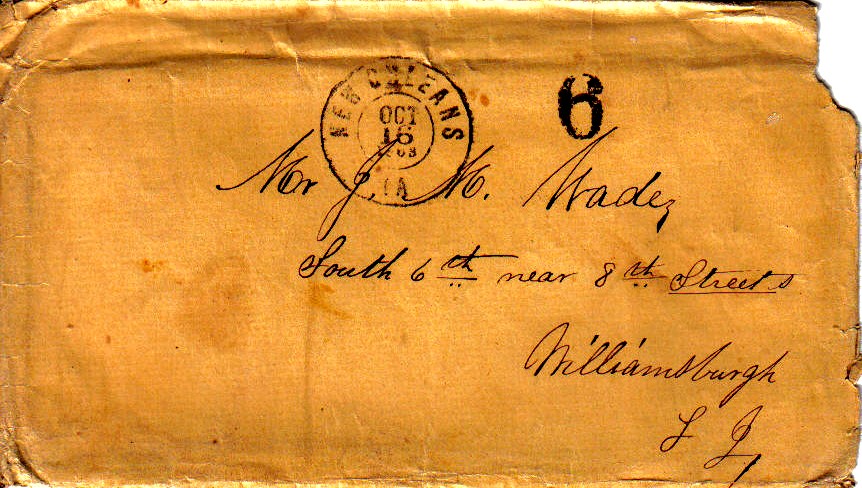 NEW ORLEANS
OCT
16
LA
6
Mr J. M. Wade,
South 6th near 8th Streets
Williamsburgh
L I,